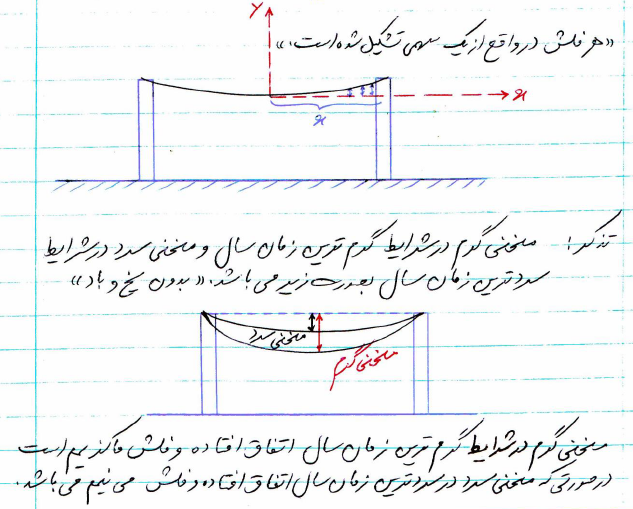 Y
«هر فلش در واقع از یک سهمی تشکیل شده است.»
x
x
تذکر! منحنی گرم در شرایط گرم ترین زمان سال و منحنی سرد در شرایط
سردترین زمان سال بصورت زیر می باشد. «بدون یخ و باد»
منحنی سرد
منحنی گرم
منحنی گرم در شرایط گرم ترین زمان سال اتفاق افتاده و فلش ماکزیمم است
در صورتی که منحنی سرد در سردترین زمان سال اتفاق افتاده و فلش می نیمم می باشد.